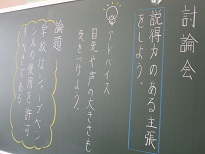 討論会
説得力のある主張
をしよう。
アドバイス
目先や声の大きさにも
気をつけよう。
論題
学校はシャープペン
シルの使用を許可
すべきである